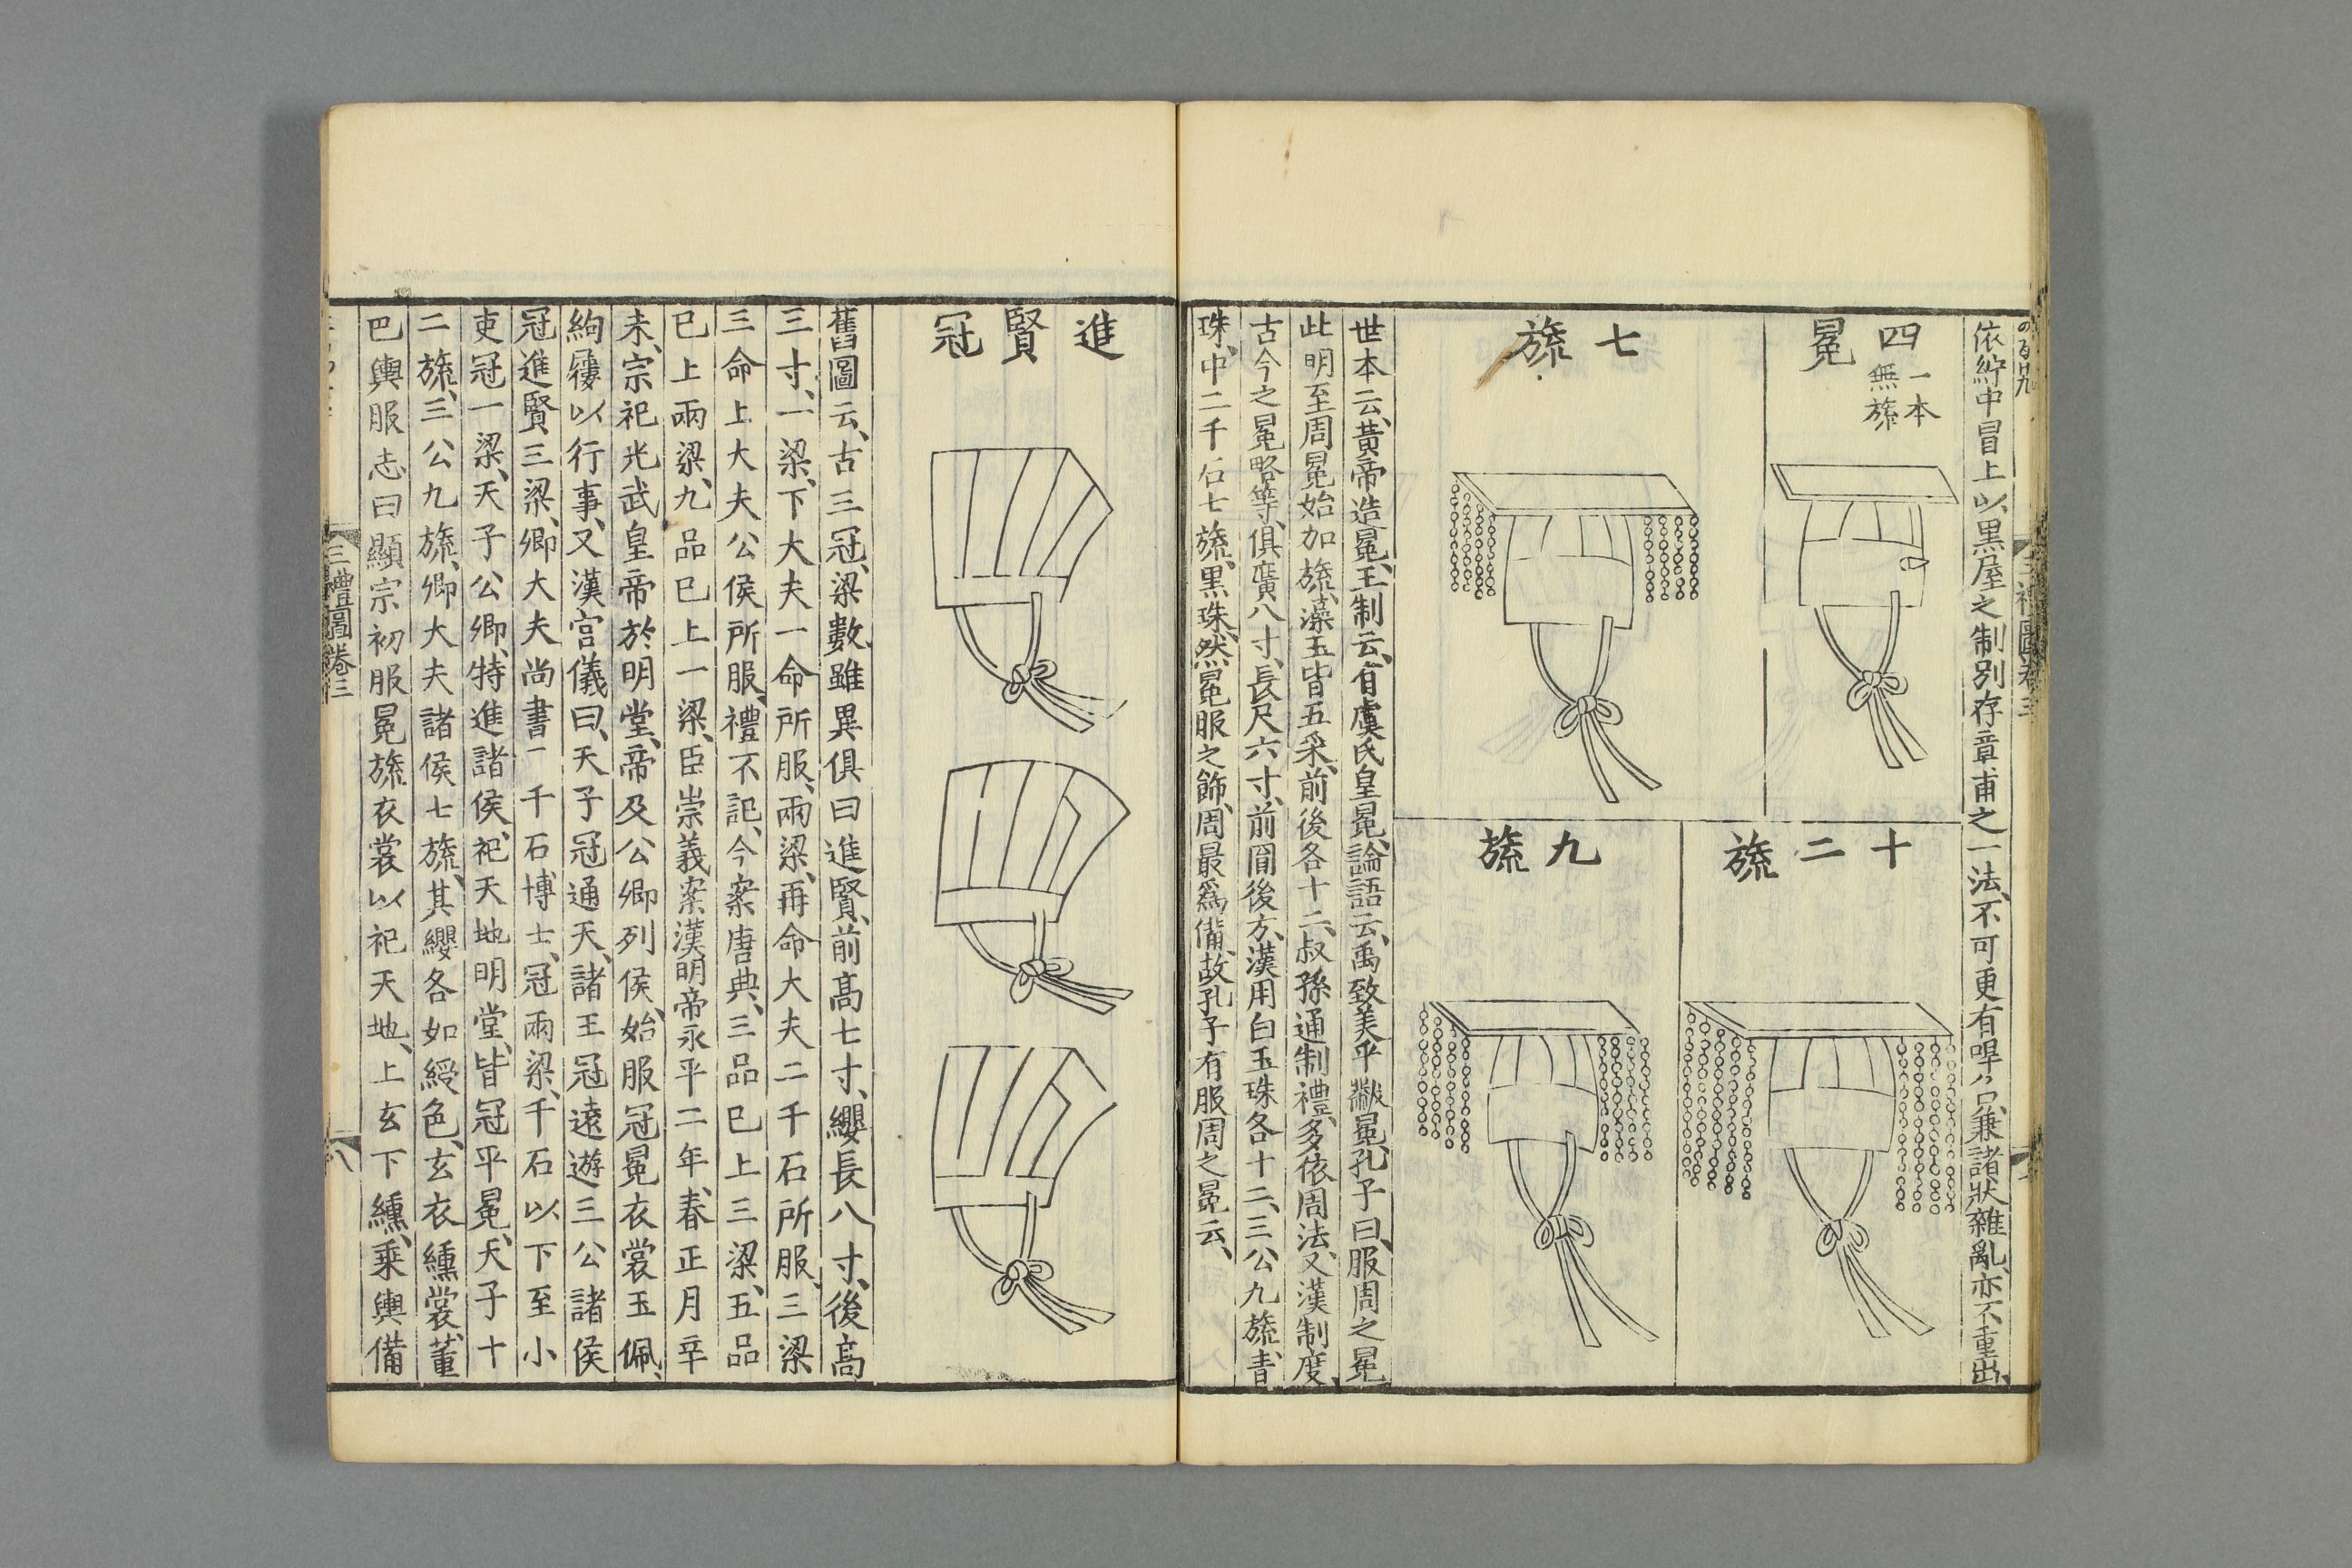 依紵中冒上以黒屋之制別存章甫之一法、不可更有哻㕣兼諸狀雜亂、亦不重出、
四冕
一本
無旒
七旒
十二旒
九旒
世本云、黃帝造冕、王制云、有虞氏皇冕、論語云、禹致美乎黻冕、孔子曰、服周之冕
此明至周冕始加旒、藻玉皆五采、前後各十二、叔孫通制禮、多依周法、又漢制度、
古今之冕略等、俱廣八寸、長尺六寸、前圓後方、漢用白玉珠各十二、三公九旒、青
珠、中二千石七旒、黒珠、然冕服之飾、周最爲備、故孔子有服周之冕云、
進賢冠
舊圖云、古三冠、梁數雖異、俱曰進賢、前高七寸、纓長八寸、後高
三寸、一梁、下大夫一命所服、兩梁、再命大夫二千石所服、三梁
三命上大夫公侯所服、禮不記、今案唐典、三品已上三梁、五品
已上兩梁、九品已上一梁、臣崇義案漢明帝永平二年、春正月辛
未、宗祀光武皇帝於明堂、帝及公卿列侯、始服冠冕衣裳玉佩、
絇屨以行事、又漢官儀曰、天子冠通天、諸王冠遠遊三公諸侯
冠進賢三梁、卿大夫尚書二千石博士、冠兩梁、千石以下至小
吏冠一梁、天子公卿、特進諸侯、祀天地明堂、皆冠平冕、天子十
二旒、三公九旒、卿大夫諸侯七旒、其纓各如綬色、玄衣纁裳、董
巴輿服志曰顯宗初服冕旒衣裳以祀天地、上玄下纁、乘輿備
三禮圖卷三
八